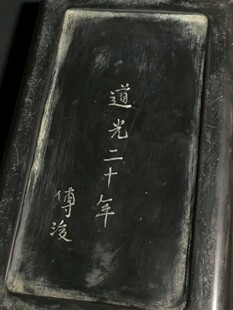 道光二十年
傅浚